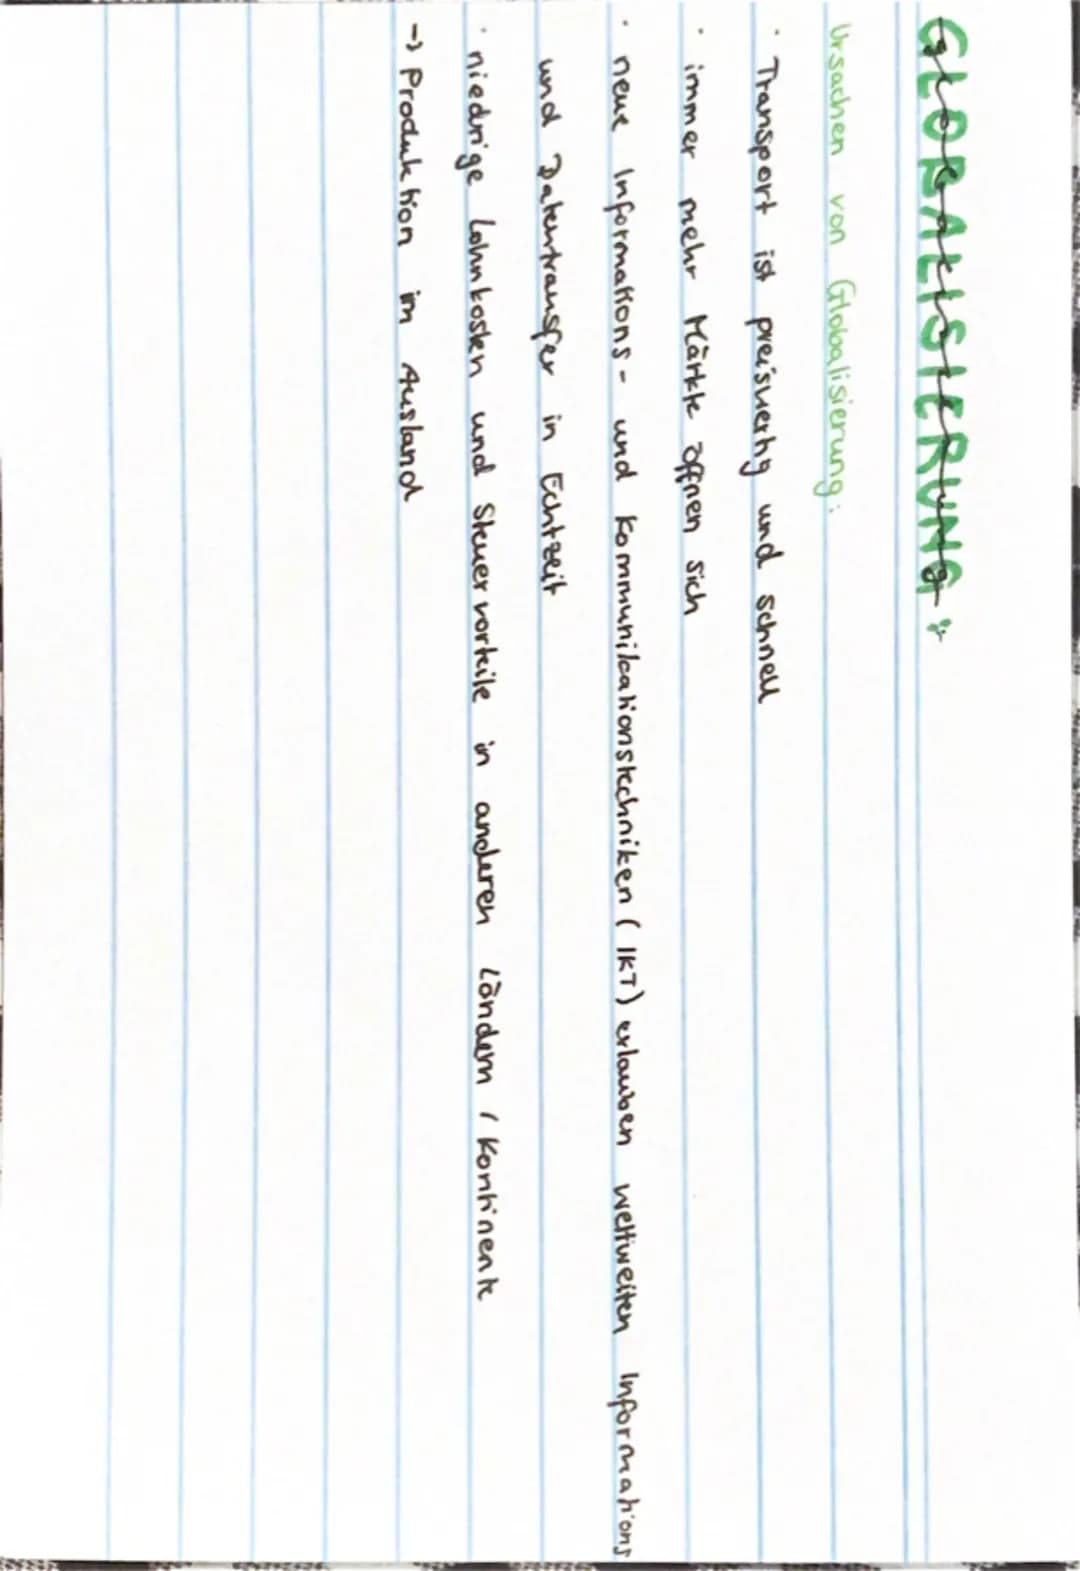 GLOBALISIERUNG
Ursachen von Globalisierung:
· Transport ist preiswertig und schnell
· immer mehr Märkte öffnen sich
· neue Informations- und Kommunikationstechniken (IKT) erlauben weltweiten Informations
und Datentransfer in Echtzeit
· niedrige Lohnkosten und Steuervorteile in anderen Ländern / Kontinente
-> Produktion im Ausland